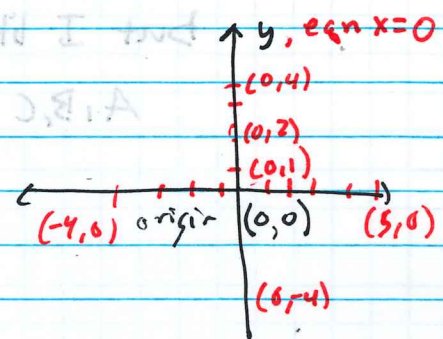 y, eqn x=0
(0,4)
(0,2)
(0,1)
(-4,0) origin (0,0) (5,0)
(0,-4)